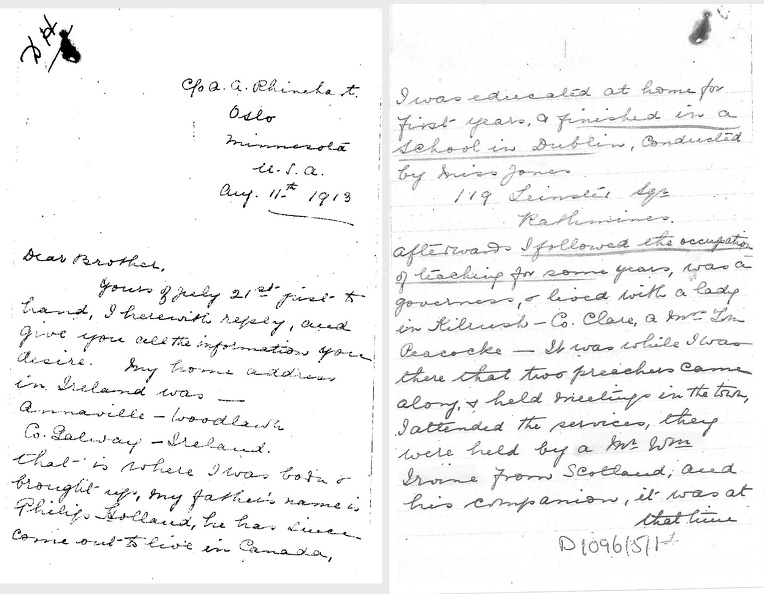 c/o A. A. Rhinehart.
Oslo
Minnesota
U.S.A.
Aug. 11th 1913
Dear Brother,
Yours of July 21st just to
hand, I herewith reply, and
give you all the information you
desire. My home address
in Ireland was —
Annaville – Woodlawn
Co. Galway – Ireland.
that is where I was born &
brought up, my father's name is
Philip Holland, he has since
come out to live in Canada,
I was educated at home for
first years, & finished in a
school in Dublin, conducted
by Miss Jones
119 Leinster Sqr
Rathmines.
afterwards I followed the occupation
of teaching for some years, was a
governess, & lived with a lady
in Kilrush – Co. Clare, a Mrs
Peacocke — It was while I was
there that two preachers came
along, & held meetings in the town,
I attended the services, they
were held by a Mr. Wm
Irvine from Scotland, and
his companion, it was at
that time
D1096/5/1